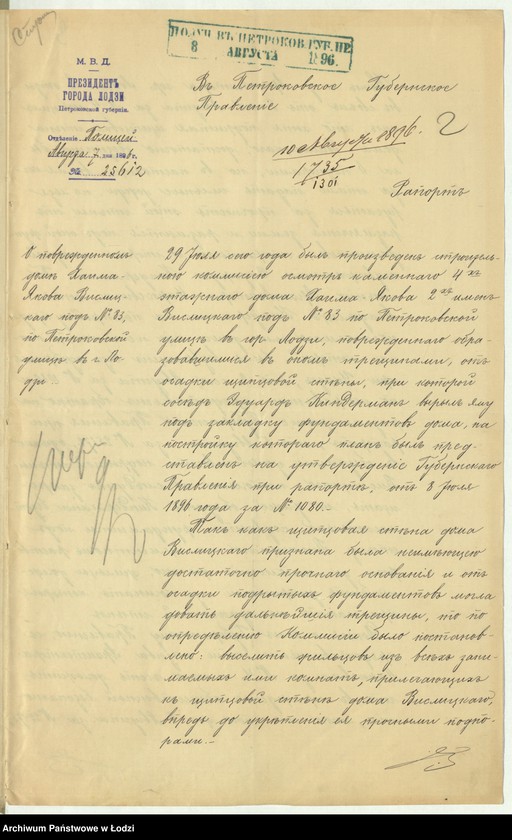 ПОЛУЧ. ВЪ ПЕТРОКОВ. ГУБ. ПР.
8 АВГУСТА 1896.
М. В. Д.
ПРЕЗИДЕНТЪ
ГОРОДА ЛОДЗИ
Петроковской губерніи.
Отдѣленіе Полицей
Августа 7 дня 1896 г.
№ 25612
Въ Петроковское Губернское
Правленіе
10 Августа 1896. 2
1735
1301
Рапортъ
О поврежденномъ
домѣ Хаима-
Якова Вислиц-
каго подъ № 83,
по Петроковской
улицѣ въ г. Ло-
дзи.
29 Іюля сего года былъ произведенъ строитель-
ною коммисіею осмотръ каменнаго 4хъ
этажнаго дома Хаима-Якова 2хъ именъ
Вислицкаго подъ № 83 по Петроковской
улицѣ въ гор. Лодзи, поврежденнаго обра-
зовавшимися въ ономъ трещинами, отъ
осадки щипцовой стѣны, при которой
сосѣдъ Эдуардъ Киндерманъ вырылъ яму
подъ закладку фундаментовъ дома, на
постройку котораго планъ былъ пред-
ставленъ на утвержденіе Губернскаго
Правленія при рапортѣ, отъ 8 Іюля
1896 года за № 1080.-
Такъ какъ щипцовая стѣна дома
Вислицкаго признана была неимѣющею
достаточно прочнаго основанія и отъ
осадки подрытыхъ фундаментовъ могла
довать дальнѣйшія трещины, то по
опредѣленію Коммисіи было постанов-
лено: выселить жильцовъ изъ всѣхъ зани-
маемыхъ ими комнатъ, прилегающихъ
къ щипцовой стѣнѣ дома Вислицкаго,
впредь до укрѣпленія ея прочными подпо-
рами.-
Archiwum Państwowe w Łodzi